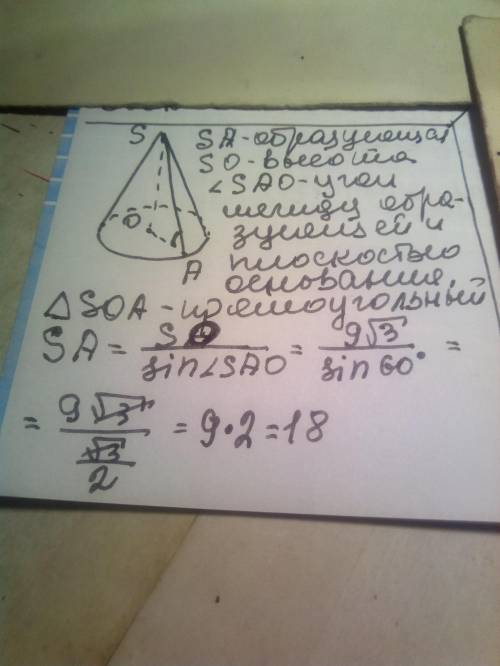 S
O
A
SA - образующая
SO - высота
∠SAO - угол
между обра-
зующей и
плоскостью
основания.
△SOA - прямоугольный
SA = SO / sin∠SAO = 9√3 / sin60° =
= 9√3 / (√3 / 2) = 9·2 = 18